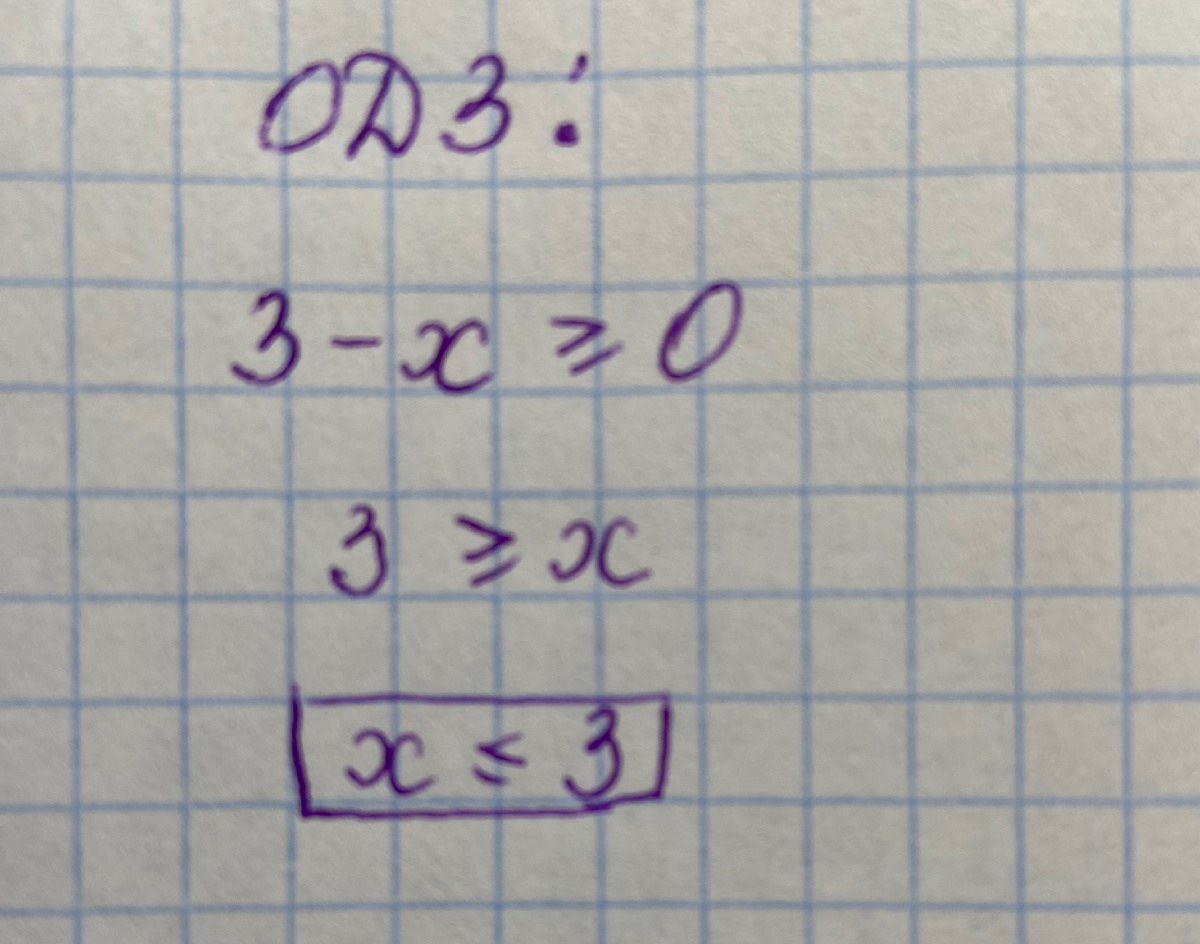 ОДЗ:
3 - x ≥ 0
3 ≥ x
x ≤ 3